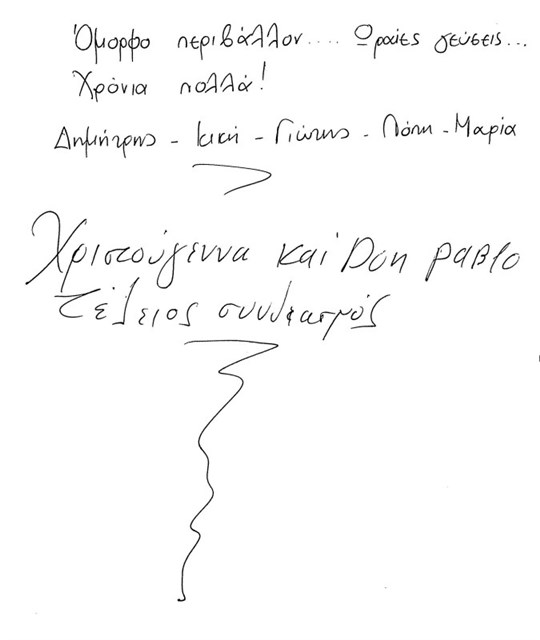 Όμορφο περιβάλλον.... Ωραίες γεύσεις...
Χρόνια πολλά!
Δημήτρης - Κική - Γιώτης - Πόπη - Μαρία
Χριστούγεννα και Don Pablo
Τέλειος συνδυασμός